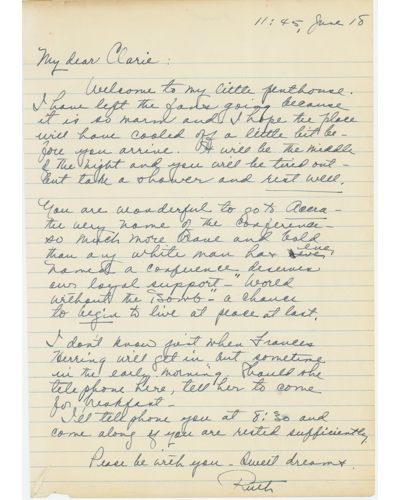 11:45, June 18
My dear Clarie:
Welcome to my little penthouse.
I have left the fans going because
it is so warm and I hope the place
will have cooled off a little bit be-
fore you arrive. It will be the middle
of the night and you will be tired out -
but take a shower and rest well.
You are wonderful to go to Accra -
the very name of the Conference -
so much more brave and bold
than any white man has ever
named a conference, deserves
our loyal support - "World
without the Bomb" - a chance
to begin to live at peace at last.
I don't know just when Frances
Herring will get in but sometime
in the early morning. Should she
telephone here, tell her to come
for breakfast -
I'll telephone you at 8:30 and
come along if you are rested sufficiently
Peace be with you - Sweet dreams.
Ruth